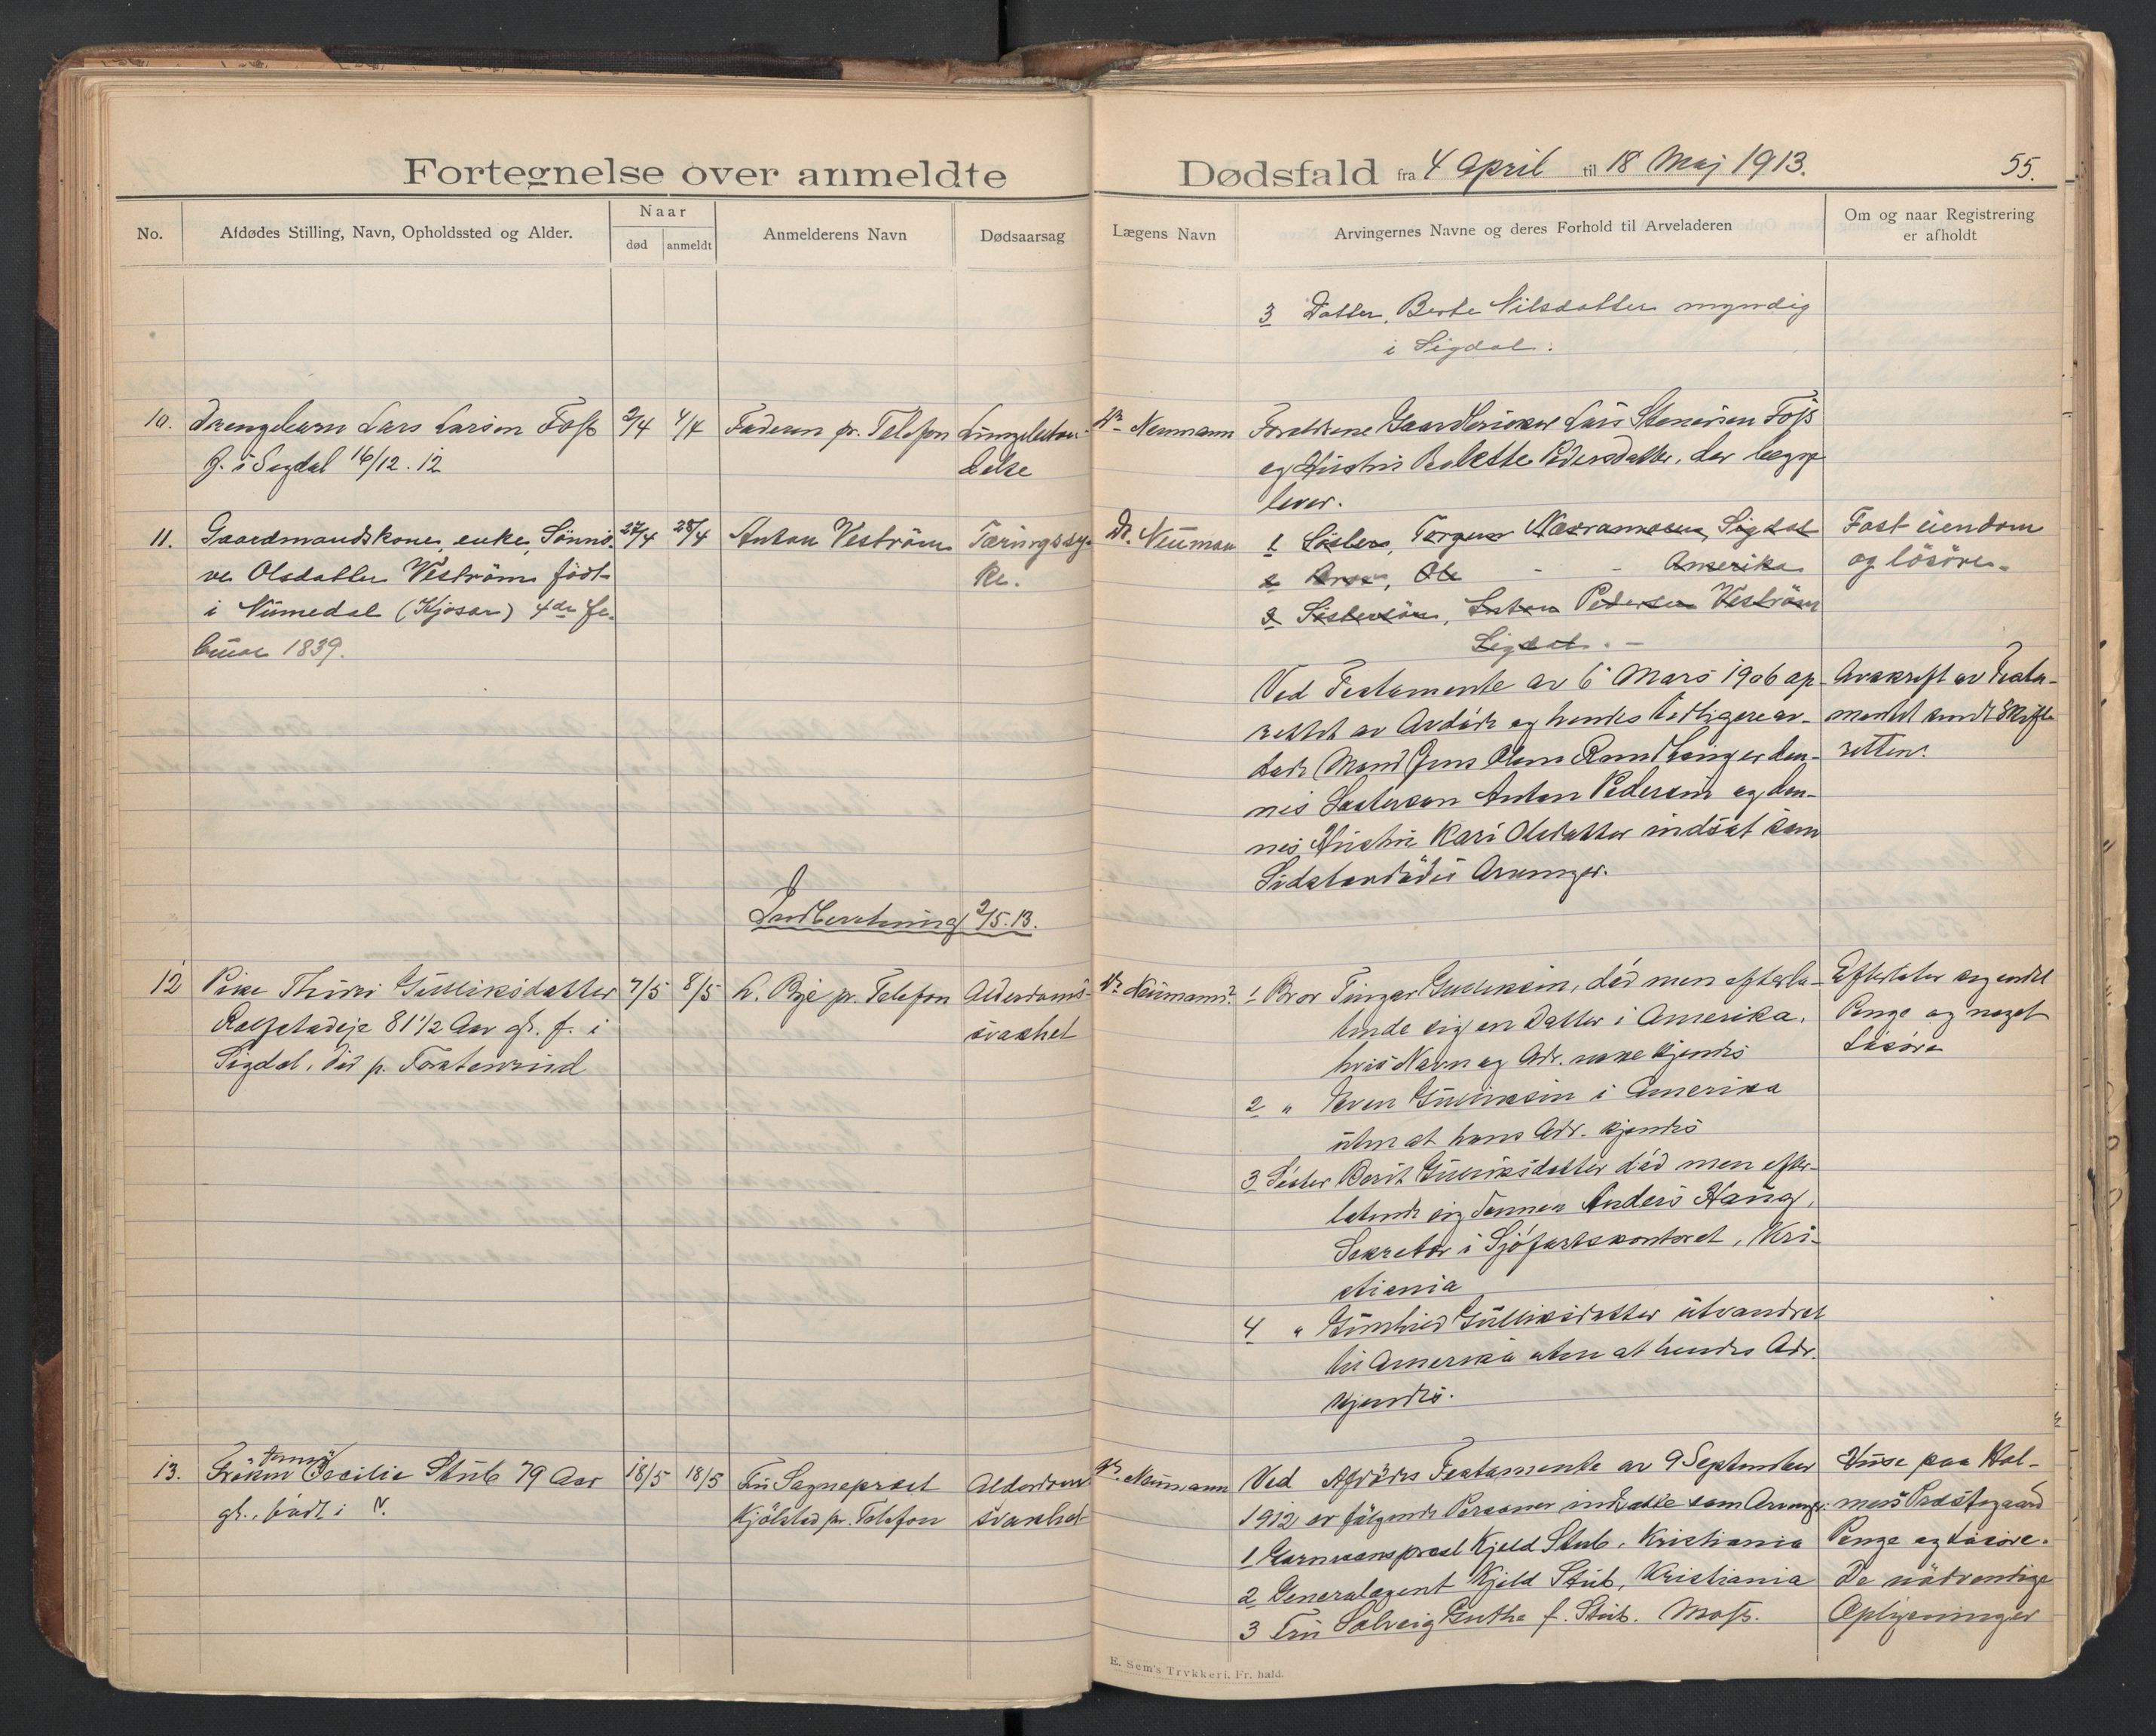 Fortegnelse over anmeldte Dødsfald fra 4 April til 18 Maj 1913. 55.
No. Afdødes Stilling, Navn, Opholdssted og Alder. Naar død anmeldt Anmelderens Navn Dødsaarsag Lægens Navn Arvingernes Navne og deres Forhold til Arveladeren Om og naar Registrering er afholdt
3 Datter, Berte Nilsdatter myndig
i Sigdal.
10. Drengebarn Lars Larsen Foss 2/4 4/4 Faderen pr. Telefon Lungebetæn- Dr. Neumann Forældrene Gaardbruker Lars Stenersen Foss
f. i Sigdal 16/12.12 delse og Hustru Bolette Pedersdatter, der begge
lever.
11. Gaardmandskone, enke, Sønnø- 27/4 28/4 Anton Veström Tæringssy- Dr. Neuman 1 Söster, Torgun Sigdal Fast eiendom
ve Olsdatter Veström født ke. 2 Bror, Ole - - Amerika og lösöre.
i Numedal (Kjosar) 4de fe- 3 Söstersön, Anton Pedersen Veström
bruar 1839. Sigdal. -
Ved Testamente av 6 Mars 1906 op- Avskrift av Testa-
rettet av Avdöde og hendes tidligere av- mentet sendt Skifte
döde Mand Jens Olsen er den- retten.
nes Søstersøn Anton Pedersen og den-
nes Hustru Kari Olsdatter indsat som
Sidstavdødes Arvinger.
Indberetning 2/5.13.
12 Pike Thuri Gulliksdatter 7/5 8/5 H. Bye pr. Telefon Alderdoms- Dr. Neumann 1 Bror Gulliksen, död men efterla- Efterlater sig endel
81 1/2 Aar gl. f. i svakhet tende sig en Datter i Amerika, Penge og noget
Sigdal, död p. hvis Navn og Adr. ikke kjendes Lösöre
2 " Even Gulliksen i Amerika
uten at hans Adr. kjendes
3 Søster Berit Gulliksdatter död men efter-
latende sig Sønnen Anders Haug,
Sekretær i Sjöfartskontoret, Kri-
stiania
4 " Gunhild Gulliksdatter utvandret
til Amerika uten at hendes Adr.
kjendes.
13. Frøken Cecilie Stub 79 Aar 18/5 18/5 Fru Sogneprest Alderdoms- Dr. Neumann Ved Afdödes Testamente av 9 September Huse paa Hol-
gl., født i V. Kjölstad pr. Telefon svakhet 1912 er følgende Personer indsatte som Arvinger: mens Præstegaard
1 Garnisonsprest Kjeld Stub, Kristiania Penge og Lösöre.
2 Generalagent Kjeld Stub, Kristiania De nödvendige
3 Fru Solveig Guthe f. Stub. Moss. Oplysninger
E. Sem's Trykkeri, Fr. hald.